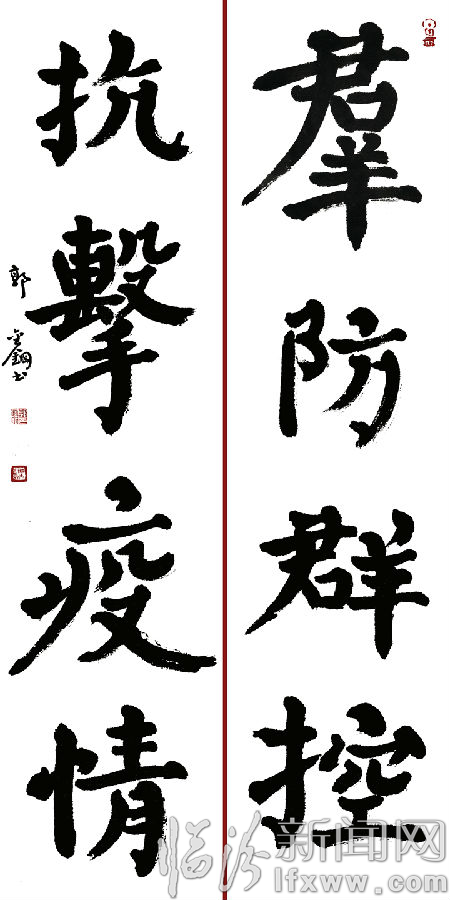 羣防群控
抗擊疫情
郭金鋼书
临汾新闻网
lfxww.com